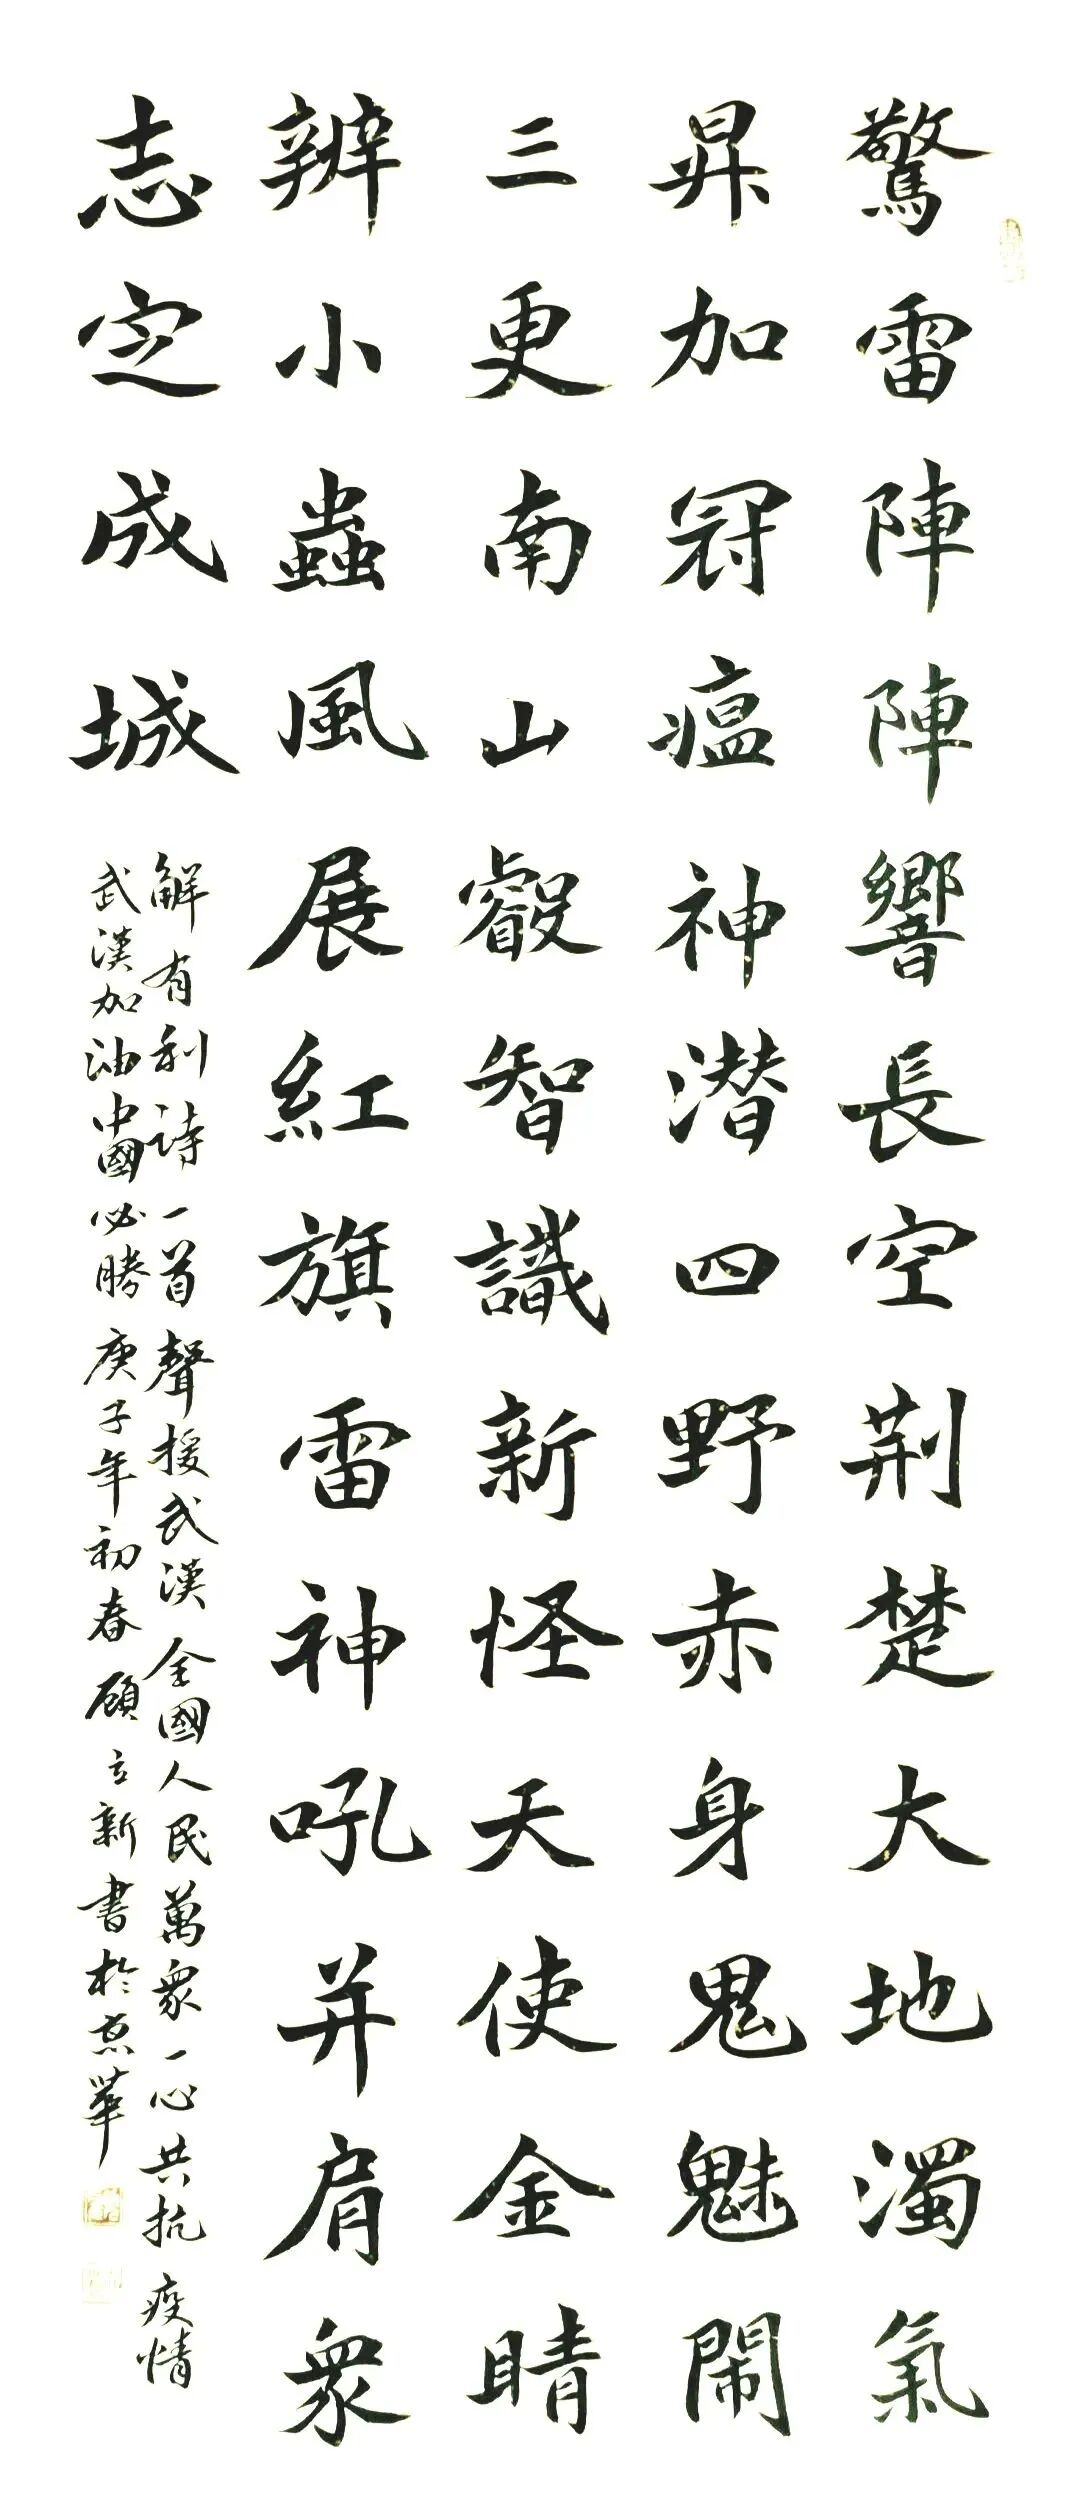 驚雷陣陣響長空荆楚大地濁氣
昇加冠瘟神潜四野赤身鬼魅鬧
三更南山叡智識新怪天使金睛
辨小蟲風展紅旗雷神吼并肩衆
志之成城
解有利詩一首聲援武漢全國人民萬衆一心共抗疫情
武漢加油中國必勝庚子年初春顧立新書於京華